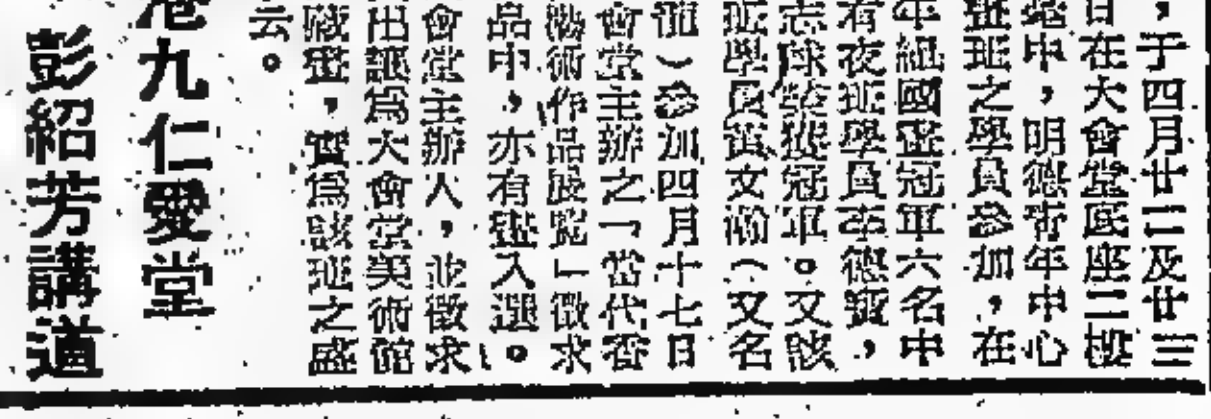 ，于四月廿二及廿三
日在大會堂底座二樓
中，明德青年中心
畫班之學員參加，在
年組國畫冠軍六名中
有夜班學員李德寶，
志球榮獲冠軍。又該
班學員黃文（又名
龍）參加四月十七日
會堂主辦之「當代香
港藝術作品展覽」徵求
品中，亦有畫入選。
會堂主辦人，並徵求
出讓爲大會堂美術館
藏畫，實爲該班之盛
云。
港九仁愛堂
彭紹芳講道